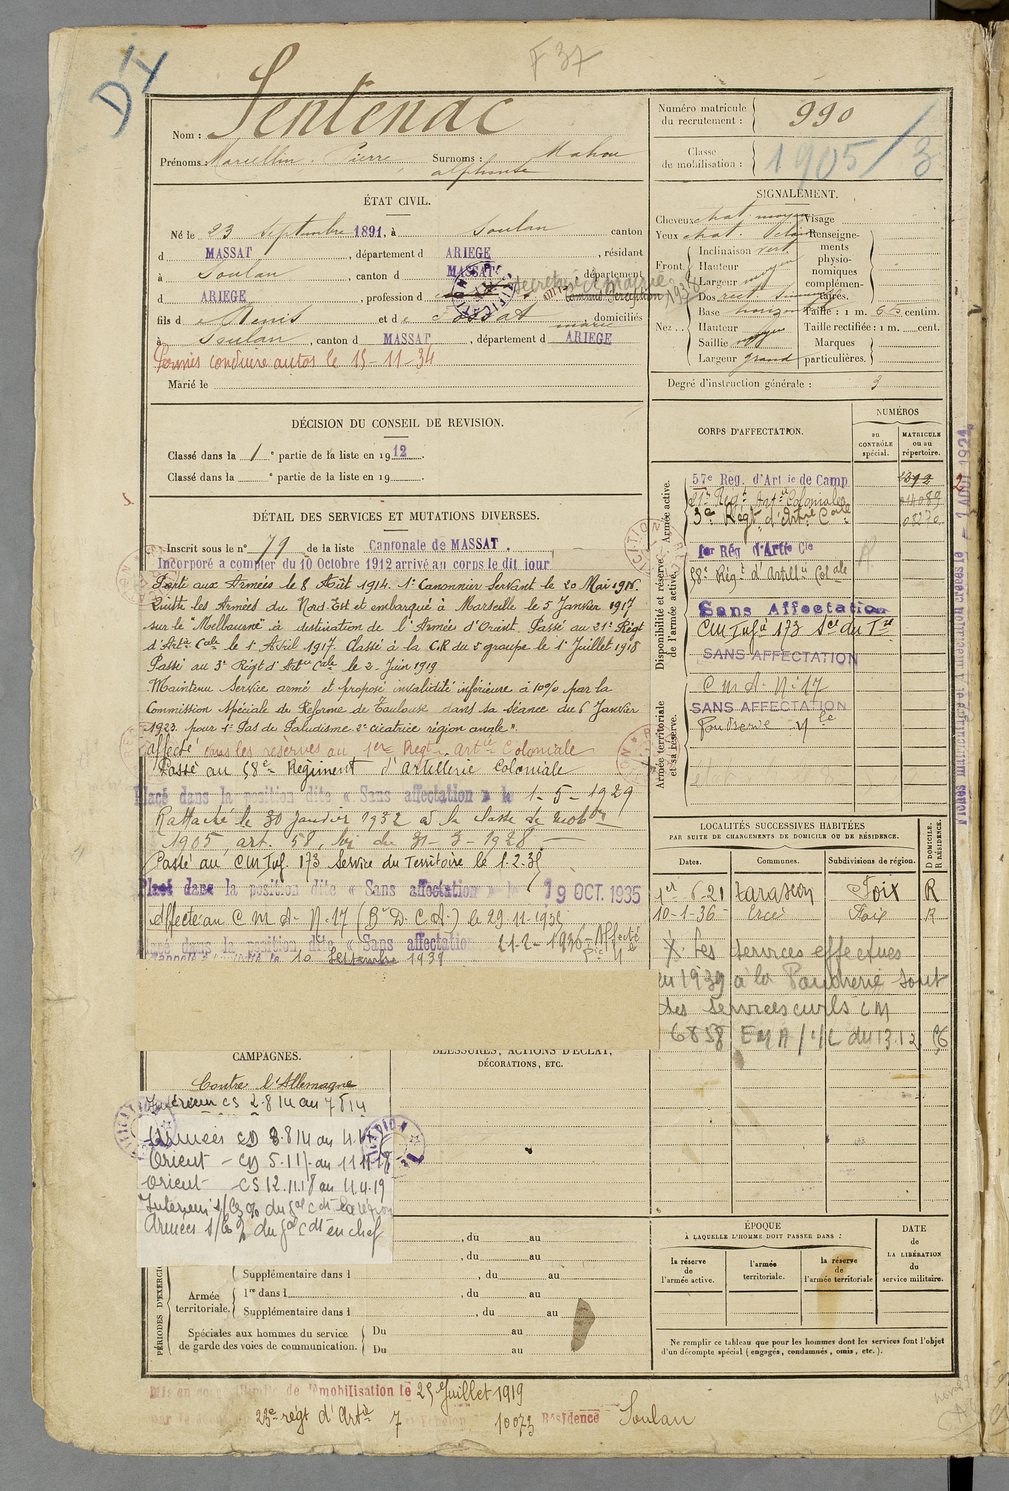 F 37
D'Y
Nom : Sentenac
Prénoms : Marcellin Pierre Surnoms : Mahou
alphonse
ÉTAT CIVIL.
Né le 23 septembre 1891, à Soulan canton
d MASSAT, département d ARIEGE, résidant
à Soulan, canton d MASSAT, département
d ARIEGE, profession d secrétaire de mairie 1938
fils d e Denis et d e domiciliés
à Soulan, canton d MASSAT, département d ARIEGE
Permis conduire autos le 15-11-34
Marié le
DÉCISION DU CONSEIL DE REVISION.
Classé dans la 1e partie de la liste en 1912.
Classé dans la e partie de la liste en 19 .
DÉTAIL DES SERVICES ET MUTATIONS DIVERSES.
Inscrit sous le n° 79 de la liste Cantonale de MASSAT.
Incorporé a compter du 10 Octobre 1912 arrivé au corps le dit jour
Parti aux Armées le 8 Août 1914. 1er Canonnier Servant le 20 Mai 1915.
Quitte les Armées du Nord-Est et embarqué à Marseille le 5 Janvier 1917
sur le "Melbourne" à destination de l'Armée d'Orient. Passé au 21e Régt
d'Artie Cale le 1er Avril 1917. Classé à la C.R du 5e groupe le 1er Juillet 1918
Passé au 3e Régt d'Artie Cale le 2 Juin 1919
Maintenu Service armé et proposé invalidité inférieure à 10% par la
Commission Spéciale de Réforme de Toulouse dans sa séance du 6 Janvier
1923 pour 1° Pas de Paludisme 2° cicatrice région anale".
affecté dans les réserves au 1er Regt. Artie Coloniale
Passé au 58e Regiment d'artillerie Coloniale
Placé dans la position dite « Sans affectation » le 1-5-1929
Rattaché le 30 janvier 1932 à la classe de mobon
1905, art. 58, loi du 31-3-1928.
Passé au CM Inf. 173 Service du Territoire le 1.2.35
Placé dans la position dite « Sans affectation » le 19 OCT. 1935
Affecté au C M A N°17 (Bon D.C.A.) le 29.11.1935
Placé dans la position dite « Sans affectation 21-2-1936. Affecté
le 10 Septembre 1939
CAMPAGNES.
Contre l'Allemagne
Intérieur CS 2.8.14 au 7.8.14
Armées CD 8.8.14 au 4.1.17
Orient - CD 5.1.17 au 11.11.18
Orient - CS 12.11.18 au 4.4.19
BLESSURES, ACTIONS D'ÉCLAT,
DÉCORATIONS, ETC.
PÉRIODES D'EXERCI
, du au
, du au
Supplémentaire dans l , du au
Armée territoriale.
1re dans l , du au
Supplémentaire dans l , du au
Spéciales aux hommes du service
de garde des voies de communication.
Du au
Du au
démobilisation le 25 Juillet 1919
23e régt d'Artie 7 10073 Résidence Soulan
Numéro matricule
du recrutement : 990
Classe
de mobilisation : 1905/3
SIGNALEMENT.
Cheveux chat. moyen Visage
Yeux chat.
Front. Inclinaison vert
Hauteur
Largeur
Nez. Dos rect.
Base horizont
Hauteur moyen
Saillie
Largeur grand
Renseigne-
ments
physio-
nomiques
complémen-
taires.
Taille : 1 m. centim.
Taille rectifiée : 1 m. cent.
Marques
particulières.
Degré d'instruction générale : 3
CORPS D'AFFECTATION.
NUMÉROS
au CONTRÔLE spécial.
MATRICULE ou au répertoire.
Armée active.
57e Reg. d'Art ie de Camp
21e Régt Artie Coloniale
3e Régt d'Artie Cole
Disponibilité et réserve
de l'armée active.
1er Rég d'Artie Cle
58e Régt d'Artillie Colale
Sans Affectation
CM Infie 173 Sce du Tre
SANS AFFECTATION
Armée territoriale
et sa réserve.
C M A. N° 17
SANS AFFECTATION
Poudrerie Nle
Fiches matricules et d'Affection créées le 2 AOUT 1924
LOCALITÉS SUCCESSIVES HABITÉES
PAR SUITE DE CHANGEMENTS DE DOMICILE OU DE RÉSIDENCE.
Dates. Communes. Subdivisions de région. D DOMICILE. R RÉSIDENCE.
1er 6-21 Tarascon Foix R
10-1-36 Ercé Foix R
X. Les services effectués
en 1939 à la Poudrerie sont
des services civils CM
6858 EMA/1/L du 13.12.
ÉPOQUE
À LAQUELLE L'HOMME DOIT PASSER DANS :
la réserve de l'armée active.
l'armée territoriale.
la réserve de l'armée territoriale
DATE de LA LIBÉRATION du service militaire.
Ne remplir ce tableau que pour les hommes dont les services font l'objet
d'un décompte spécial (engagés, condamnés, omis, etc.).